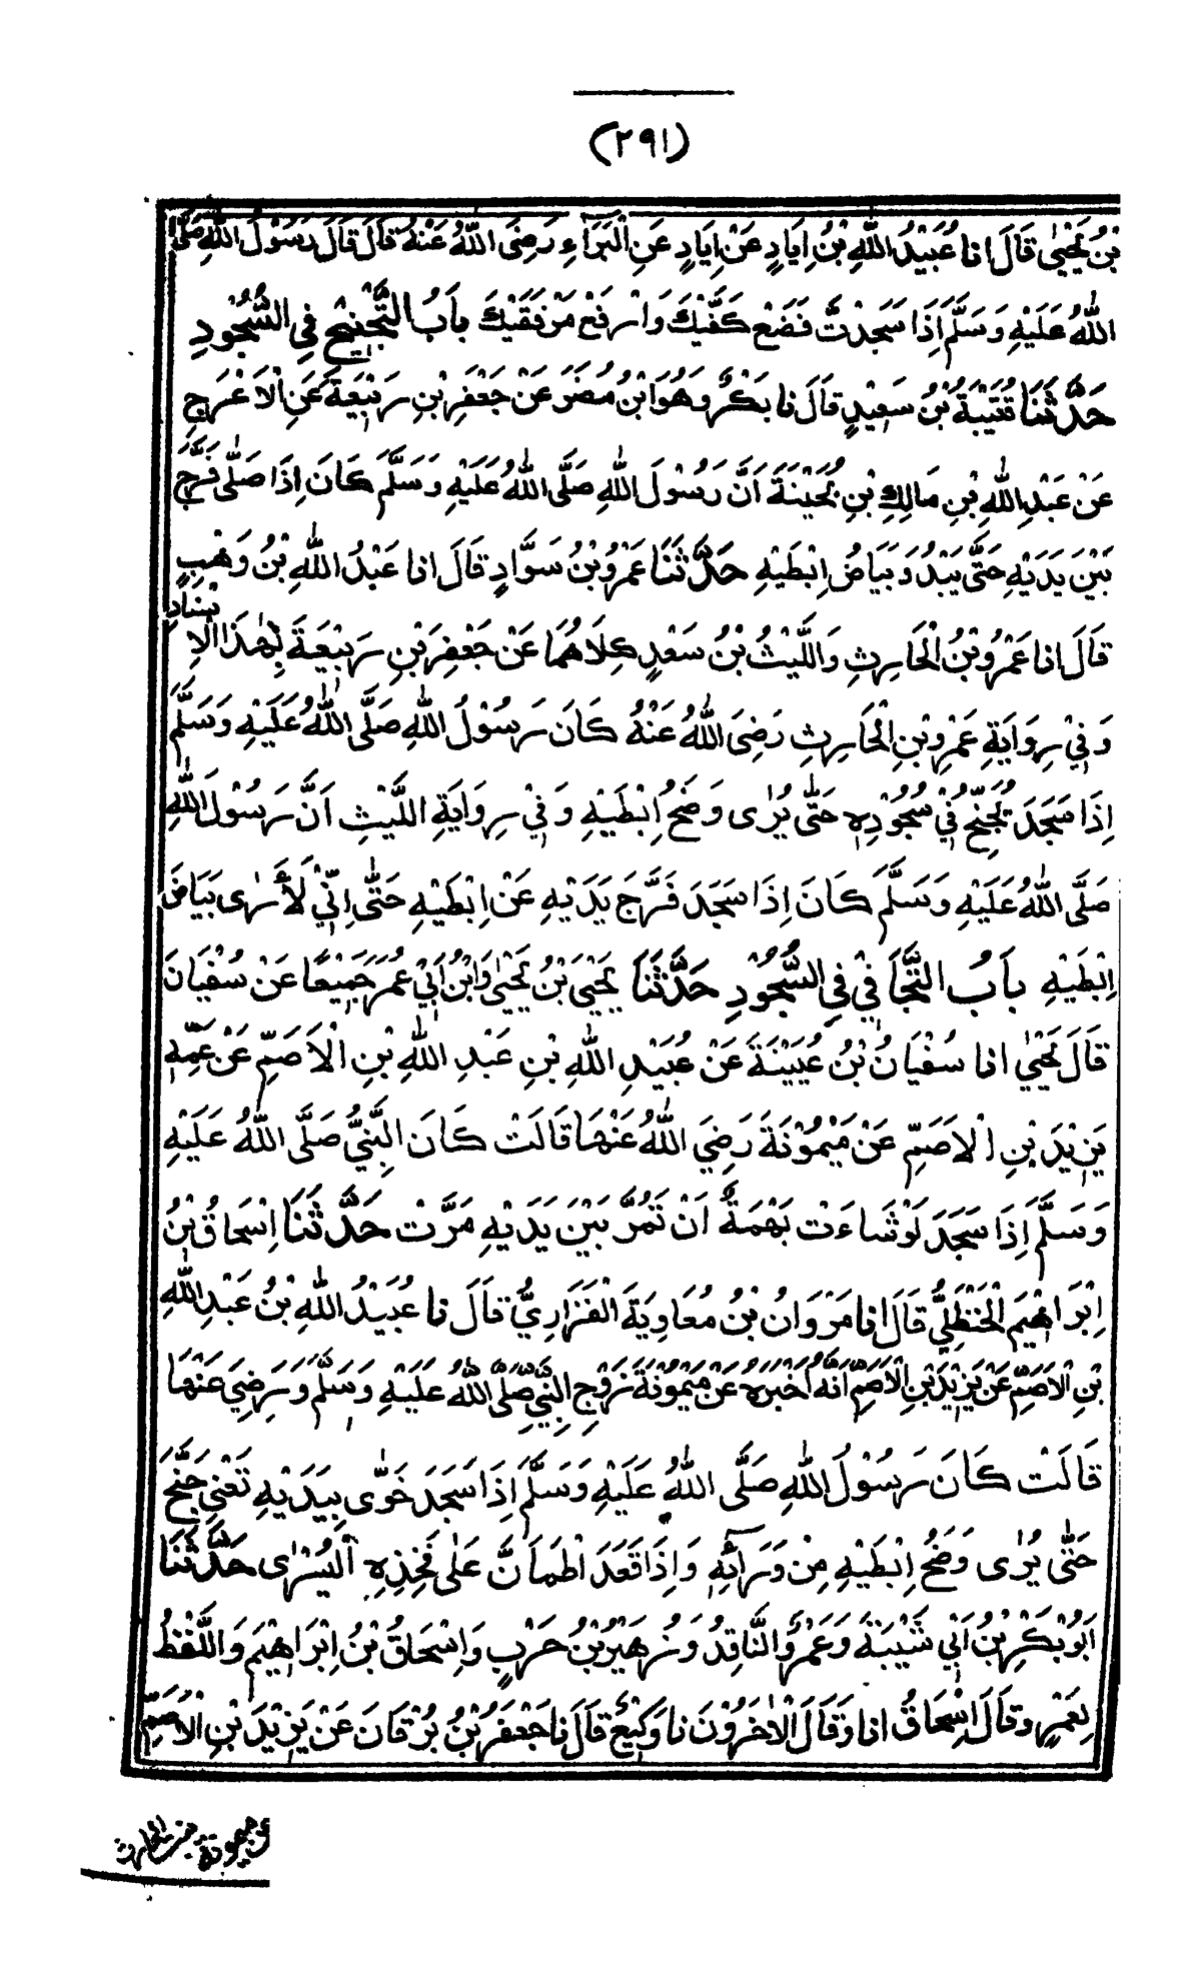 (٢٩١)
بْنُ يَحْيٰى قَالَ انا عُبَيْدُ اللّٰهِ بْنُ اِيَادٍ عَنْ اِيَادٍ عَنِ الْبَرَآءِ رَضِىَ اللّٰهُ عَنْهُ قَالَ قَالَ رَسُوْلُ اللّٰهِ صَلَّى
اللّٰهُ عَلَيْهِ وَسَلَّمَ اِذَا سَجَدْتَّ فَضَعْ كَفَّيْكَ وَارْفَعْ مَرْفَقَيْكَ بَابُ التَّجْنِيْحِ فِى السُّجُوْدِ
حَدَّثَنَا قُتَيْبَةُ بْنُ سَعِيْدٍ قَالَ نا بَكْرٌ وَهُوَ ابْنُ مُضَرَ عَنْ جَعْفَرِ بْنِ رَبِيْعَةَ عَنِ الْاَعْرَجِ
عَنْ عَبْدِ اللّٰهِ بْنِ مَالِكِ بْنِ بُحَيْنَةَ اَنَّ رَسُوْلَ اللّٰهِ صَلَّى اللّٰهُ عَلَيْهِ وَسَلَّمَ كَانَ اِذَا صَلّٰى فَرَّجَ
بَيْنَ يَدَيْهِ حَتّٰى يَبْدُوَ بَيَاضُ اِبْطَيْهِ حَدَّثَنَا عَمْرُو بْنُ سَوَّادٍ قَالَ انا عَبْدُ اللّٰهِ بْنُ وَهْبٍ
قَالَ انا عَمْرُو بْنُ الْحَارِثِ وَاللَّيْثُ بْنُ سَعْدٍ كِلَاهُمَا عَنْ جَعْفَرِ بْنِ رَبِيْعَةَ بِهٰذَا الْاِسْنَادِ
وَفِيْ رِوَايَةِ عَمْرِو بْنِ الْحَارِثِ رَضِىَ اللّٰهُ عَنْهُ كَانَ رَسُوْلُ اللّٰهِ صَلَّى اللّٰهُ عَلَيْهِ وَسَلَّمَ
اِذَا سَجَدَ يُجَنِّحُ فِيْ سُجُوْدِهٖ حَتّٰى يُرٰى وَضَحُ اِبْطَيْهِ وَفِيْ رِوَايَةِ اللَّيْثِ اَنَّ رَسُوْلَ اللّٰهِ
صَلَّى اللّٰهُ عَلَيْهِ وَسَلَّمَ كَانَ اِذَا سَجَدَ فَرَّجَ يَدَيْهِ عَنْ اِبْطَيْهِ حَتّٰى اِنِّيْ لَأَرٰى بَيَاضَ
اِبْطَيْهِ بَابُ التَّجَافِيْ فِى السُّجُوْدِ حَدَّثَنَا يَحْيَى بْنُ يَحْيٰى وَابْنُ اَبِيْ عُمَرَ جَمِيْعًا عَنْ سُفْيَانَ
قَالَ يَحْيٰي انا سُفْيَانُ بْنُ عُيَيْنَةَ عَنْ عُبَيْدِ اللّٰهِ بْنِ عَبْدِ اللّٰهِ بْنِ الْاَصَمِّ عَنْ عَمِّهٖ
يَزِيْدَ بْنِ الْاَصَمِّ عَنْ مَيْمُوْنَةَ رَضِيَ اللّٰهُ عَنْهَا قَالَتْ كَانَ النَّبِيُّ صَلَّى اللّٰهُ عَلَيْهِ
وَسَلَّمَ اِذَا سَجَدَ لَوْ شَاءَتْ بَهْمَةٌ اَنْ تَمُرَّ بَيْنَ يَدَيْهِ مَرَّتْ حَدَّثَنَا اِسْحَاقُ بْنُ
اِبْرَاهِيْمَ الْحَنْظَلِيُّ قَالَ انا مَرْوَانُ بْنُ مُعَاوِيَةَ الْفَزَارِيُّ قَالَ نا عُبَيْدُ اللّٰهِ بْنُ عَبْدِ اللّٰهِ
بْنِ الْاَصَمِّ عَنْ يَزِيْدَ بْنِ الْاَصَمِّ اَنَّهٗ اَخْبَرَهٗ عَنْ مَيْمُوْنَةَ زَوْجِ النَّبِيِّ صَلَّى اللّٰهُ عَلَيْهِ وَسَلَّمَ وَرَضِيَ عَنْهَا
قَالَتْ كَانَ رَسُوْلُ اللّٰهِ صَلَّى اللّٰهُ عَلَيْهِ وَسَلَّمَ اِذَا سَجَدَ خَوّٰى بِيَدَيْهِ تَعْنِيْ جَنَّحَ
حَتّٰى يُرٰى وَضَحُ اِبْطَيْهِ مِنْ وَرَآئِهٖ وَاِذَا قَعَدَ اطْمَاَنَّ عَلٰى فَخِذِهِ الْيُسْرٰى حَدَّثَنَا
اَبُوْ بَكْرِ بْنُ اَبِيْ شَيْبَةَ وَعَمْرٌو النَّاقِدُ وَزُهَيْرُ بْنُ حَرْبٍ وَاِسْحَاقُ بْنُ اِبْرَاهِيْمَ وَاللَّفْظُ
لِعَمْرٍو قَالَ اِسْحَاقُ انا وَقَالَ الْاٰخَرُوْنَ نا وَكِيْعٌ قَالَ نا جَعْفَرُ بْنُ بُرْقَانَ عَنْ يَزِيْدَ بْنِ الْاَصَمِّ
عن ميمونة بنت الحارث